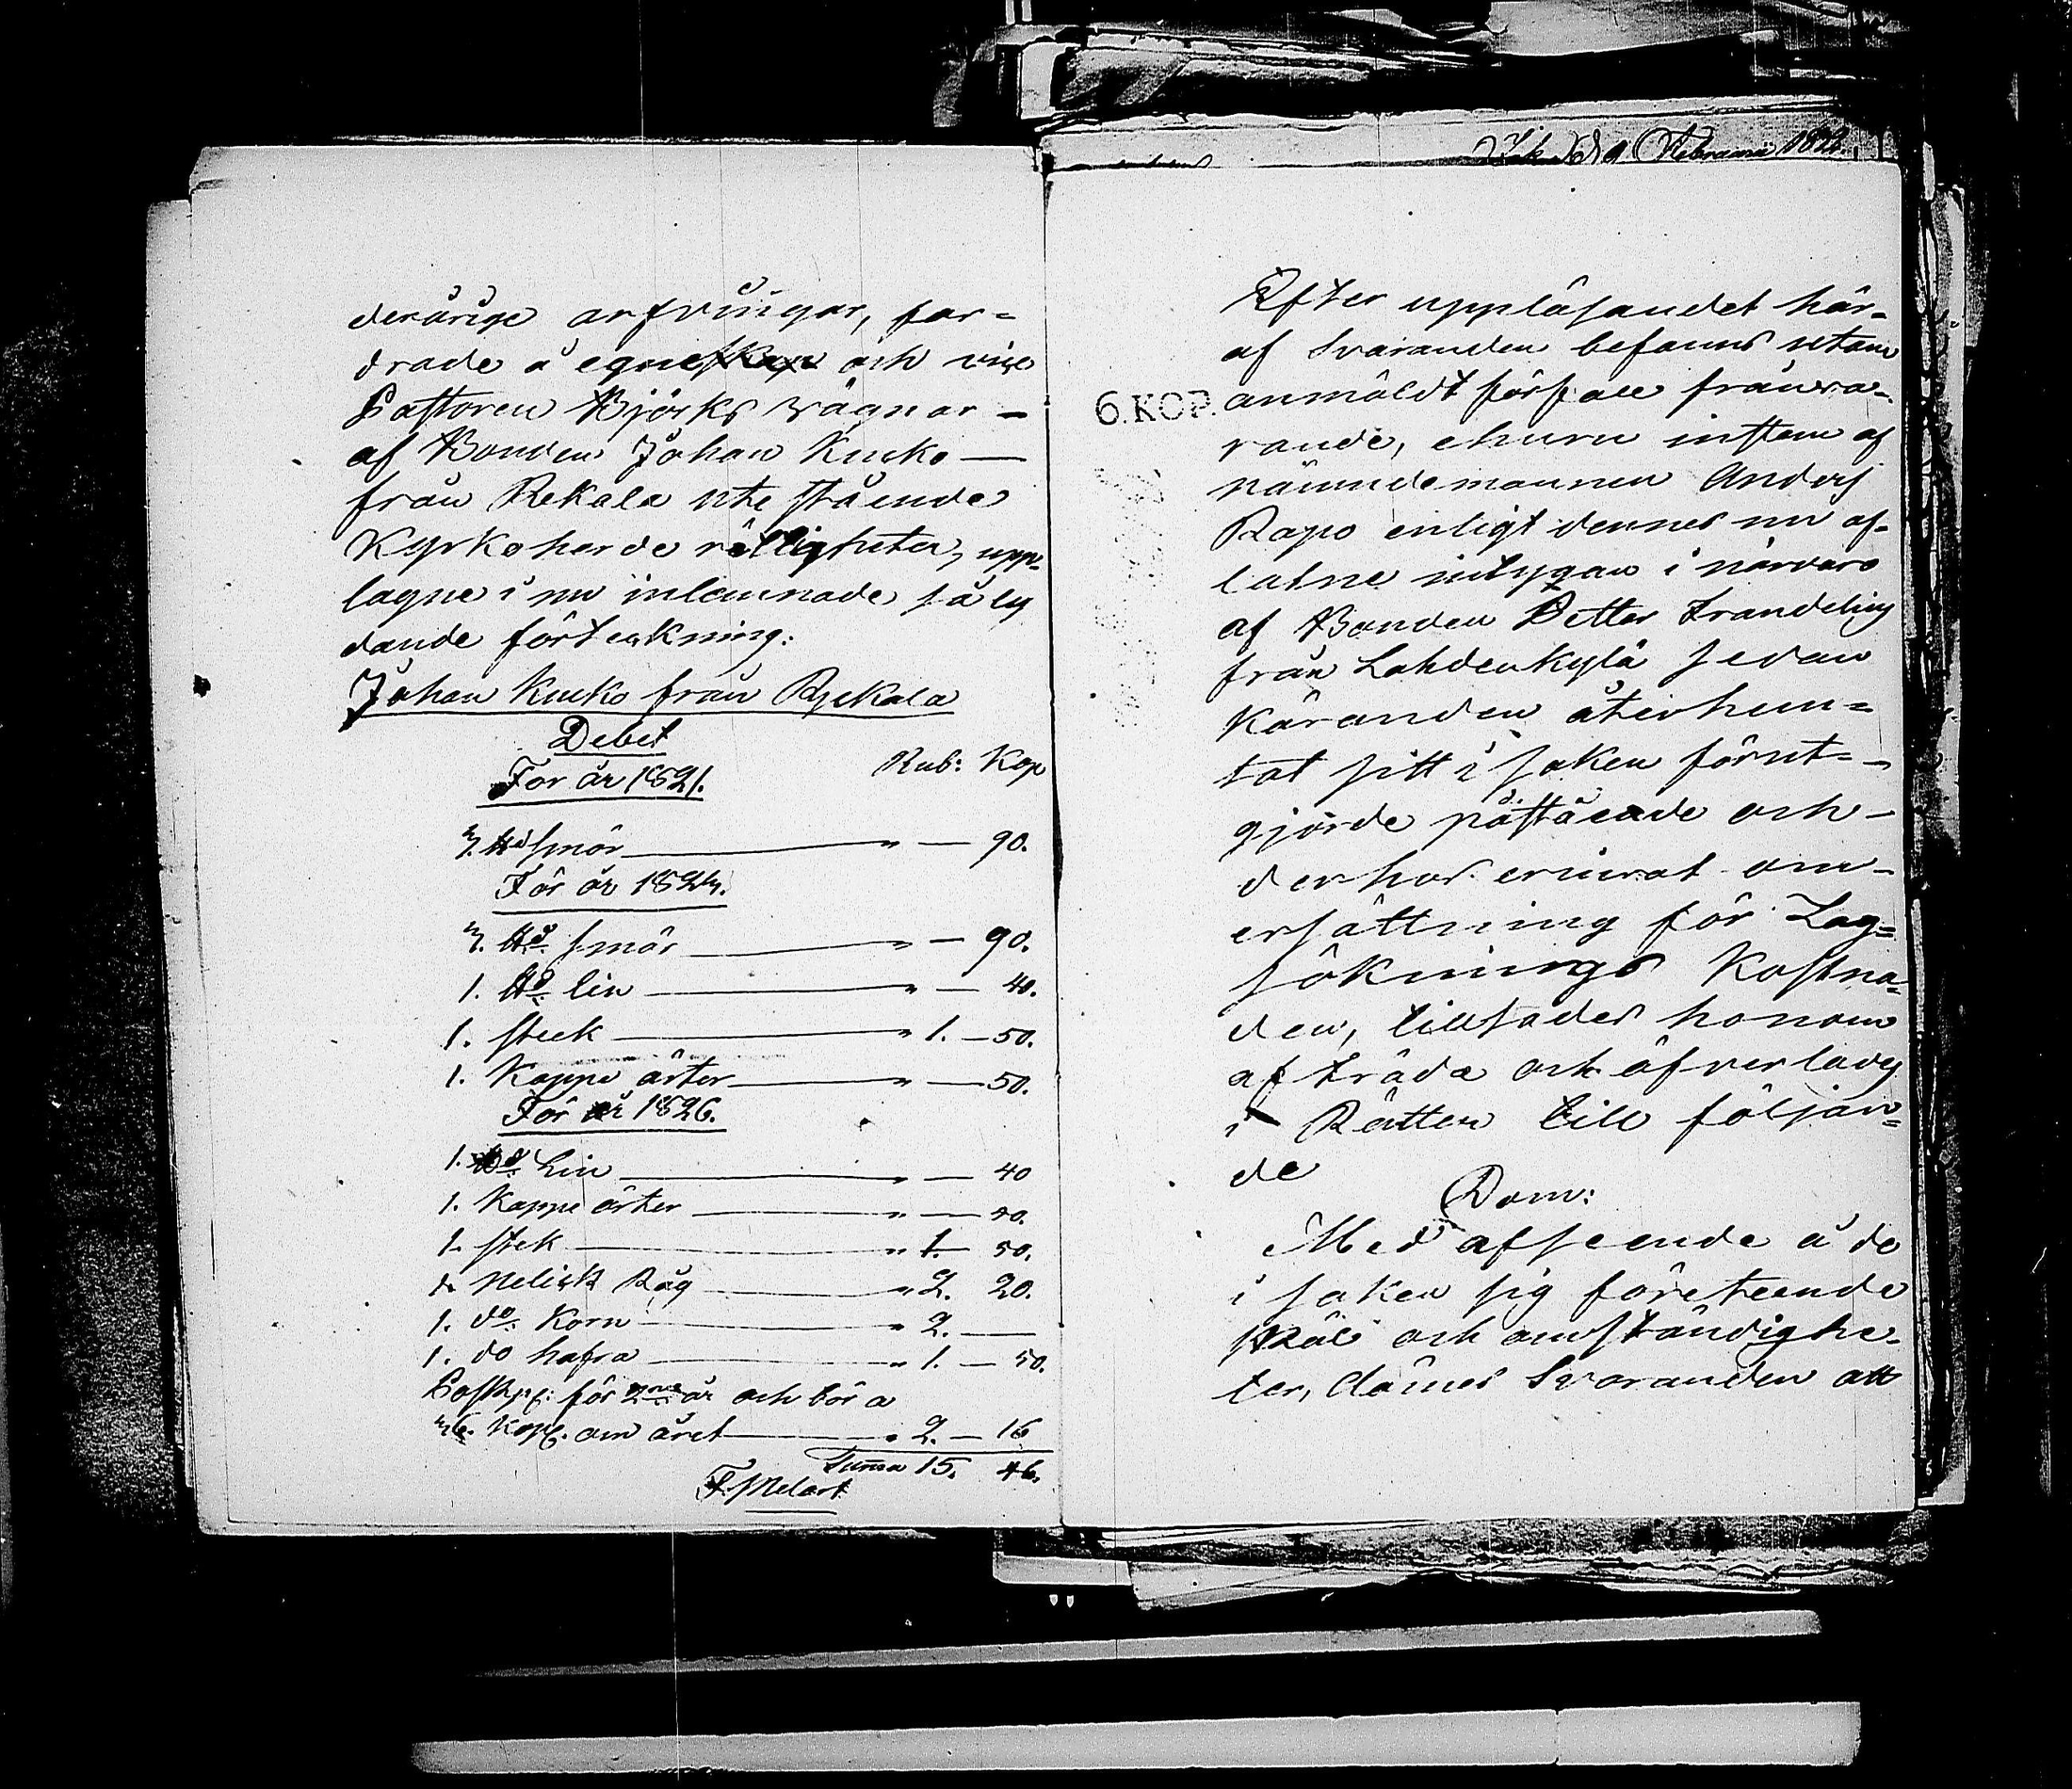 derårige arfvingar, for-
drade å egne och vice
Pastoren Björks vägnar -
af Bonden Johan Kucko -
från Rekala ute stående
Kyrkoherde rättigheter, upp-
tagne i nu inlemnade så ly
dande förtekning:
Johan Kucko från Ryekala
Debet
Rub: Kop
For år 1821.
3. ℔d smör " — 90.
För år 1824.
3. ℔d. smör " — 90.
1. ℔d. lin " — 40.
1. steek " 1. — 50.
1. Kappe ärter " — 50.
För år 1826.
1. ℔d. Lin " — 40
1. Kappe ärter " — 50.
1. stek " 1. — 50.
1. nelick Råg " 2. 20.
1. do. Korn " 2. —
1. do hafra " 1. — 50.
för 2ne år och bör a
36. Kop. om året " 2. — 16
Summa 15. 46.
F. Melart
Februarii 182
6.KOP.
Efter uppläsandet här-
af Svaranden befanns utom
anmäldt förfall frånva-
rande, ehuru instem af
nämndemannen Anders
Rapo enligt dennes nu af-
latne intygan i närvaro
af Bonden Petter Trandeling
från Lahdenkylä sedan
Käranden återhem-
tat sitt i saken förut-
gjorde påstående och -
derhos erinrat om -
ersättning för Lag-
söknings Kostna-
den, tillsades honom
afträda och öfverlades
i Rätten till följan-
de
Dom:
Med afseende å de
i saken sig företeende
skäl och omständighe-
ter, dömes Svaranden att